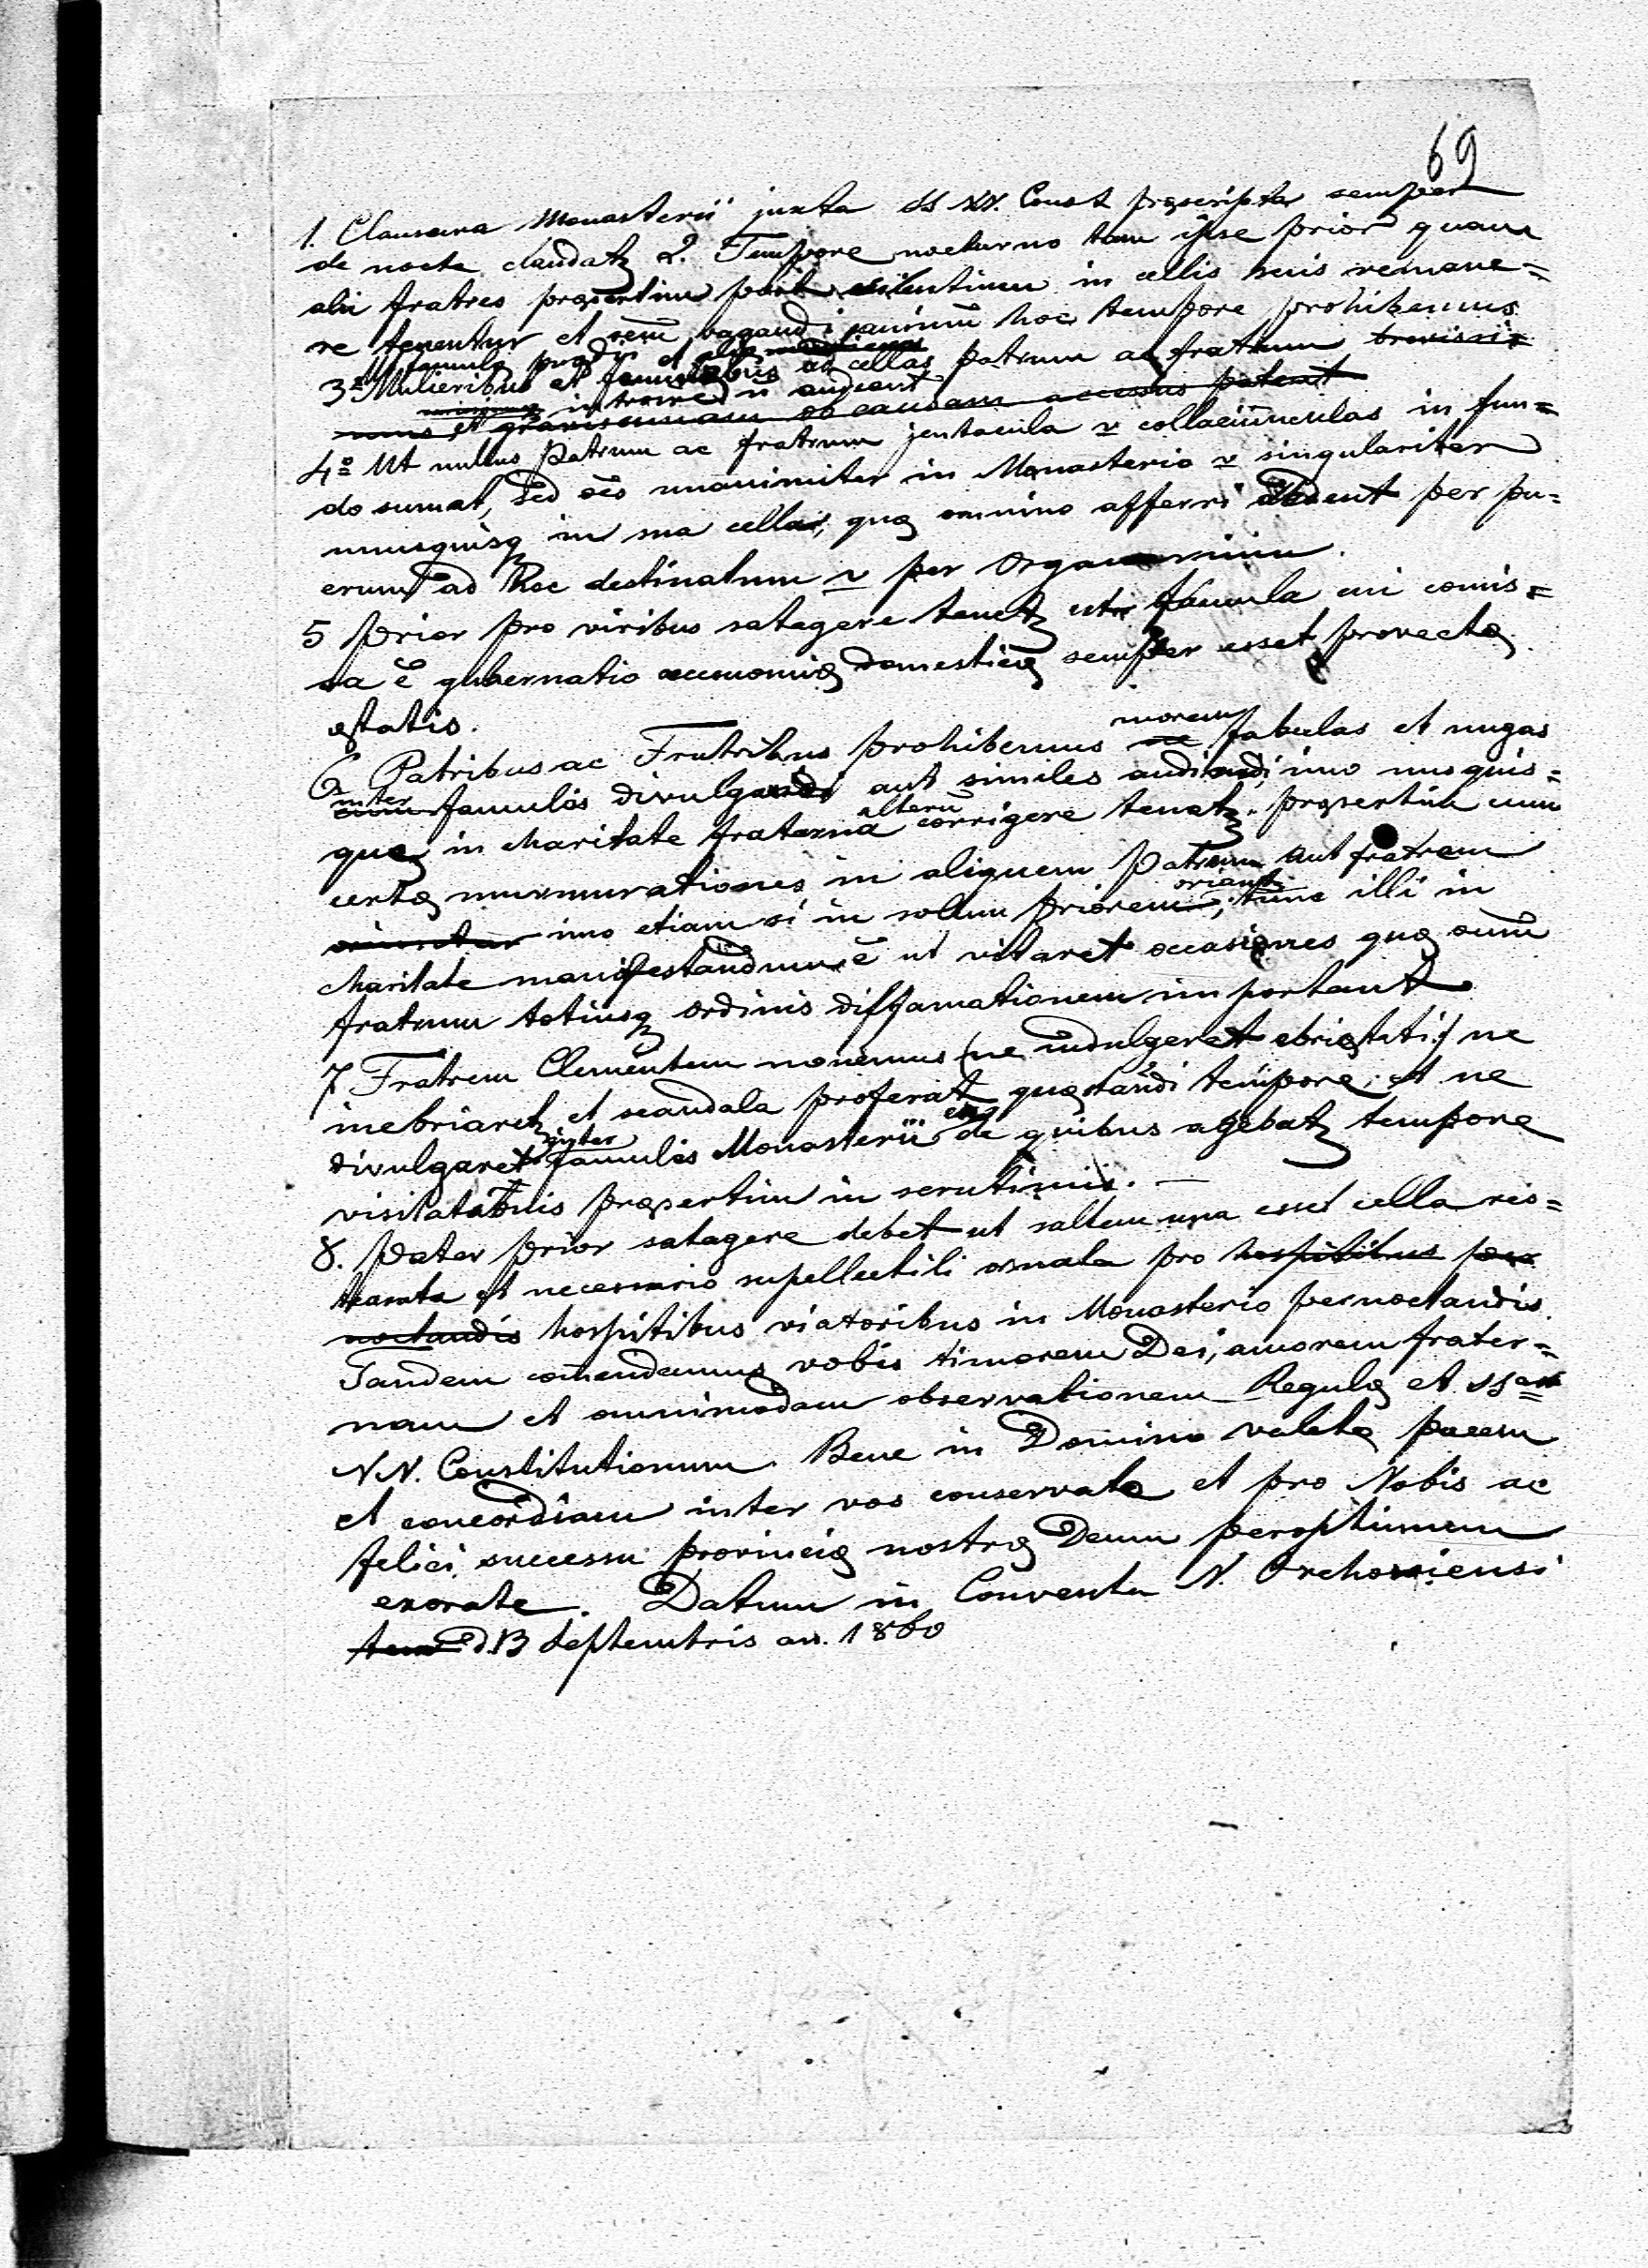 69
1. Clausura Monasterii juxta SS NN. Const pręscripta semper
de nocte claudatꝫ 2. Tempore nocturno tam ipse prior quam
alii fratres pręsertim post silentium in cellis suis remane=
re tenentur et vagandi hoc tempore prohibemus
famulę et alię
3º Mulieribus et ad cellas patrum ac fratrum brevissi=
introire audeant
mus et gravissimam ob causam accessus pateat
4º Ut nullus Patrum ac fratrum jentacula v collatiunculas in fun=
do sumat, sed oẽs unanimiter in Monasterio v singulariter
unusquisqꝫ in sua cella, quę omnino afferri debent per pu=
erum ad hoc destinatum v per Organarium.
5 Prior pro viribus satagere tenetꝫ ut famula cui comis=
sa ẽ gubernatio œconomię domesticę semper esset provectę
ętatis.
morem
6 Patribus ac Fratribus prohibemus ne fabulas et nugas
inter
cum famulos divulgandi aut similes audiendi, imo unusquis=
alterũ
que in charitate fraterna corrigere tenatꝫ, pręsertim cum
certę murmurationes in aliquem Patrem aut fratrem
oriantꝫ
oriuntur imo etiam si in solum priorem; tunc illi in
charitate manifestandum ẽ ut vitaret occasiones quę oñiũ
fratrum totiusqꝫ ordinis diffamationem important
7 Fratrem Clementem monemus (ne indulgeret ebrietati) ne
inebriaretꝫ et scandala proferat quęstandi tempore; et ne
inter ea
divulgaret famulos Monasterii de quibus agebatꝫ tempore
visitationis pręsertim in scrutiniis. —
8. Pater Prior satagere debet ut saltem una esset cella res=
taurata et necessario supellectili ornata pro hospitibus per
noctandis hospitibus viatoribus in Monasterio pernoctandis.
Tandem comendamus vobis timorem Dei, amorem frater=
nam et omnimodam observationem Regulę et SS
NN. Constitutionum. Bene in Domino valete pacem
et concordiam inter vos conservate et pro Nobis ac
felici successu provincię nostrę Deum peroptimum
exorate. Datum in Conventu N.
d. 13 Septembris an. 1860